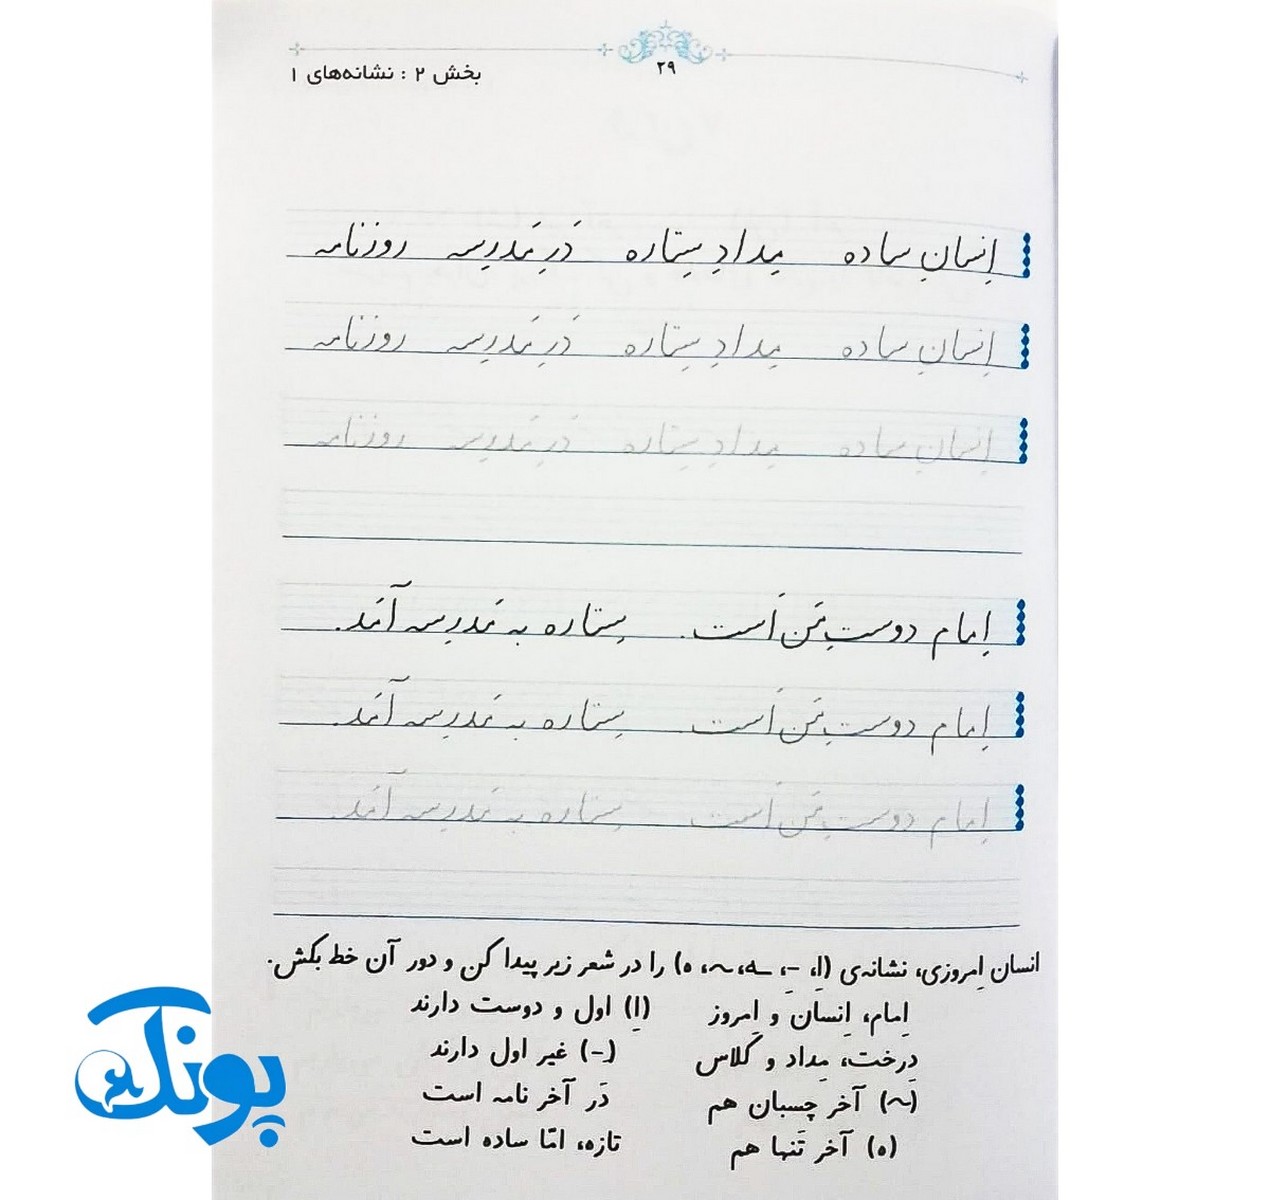 ۲۹
بخش ۲ : نشانه‌های ۱
اِنسانِ ساده مِداد سِتاره دَرِ مَدرِسه روزنامه
اِنسانِ ساده مِداد سِتاره دَرِ مَدرِسه روزنامه
اِنسانِ ساده مِداد سِتاره دَرِ مَدرِسه روزنامه
اِمام دوستِ مَن اَست. سِتاره به مَدرِسه آمَد.
اِمام دوستِ مَن اَست. سِتاره به مَدرِسه آمَد.
اِمام دوستِ مَن اَست. سِتاره به مَدرِسه آمَد.
انسان اِمروزی، نشانه‌ی (اِ، ـِ، ـه، ه) را در شعر زیر پیدا کن و دور آن خط بکش.
اِمام، اِنسان و اِمروز (اِ) اول و دوست دارند
دِرخت، مِداد و کَلاس (ـِ) غیر اول دارند
(ـه) آخر چسبان هم دَر آخر نامه است
(ه) آخر تَنها هم تازه، امّا ساده است
پونک